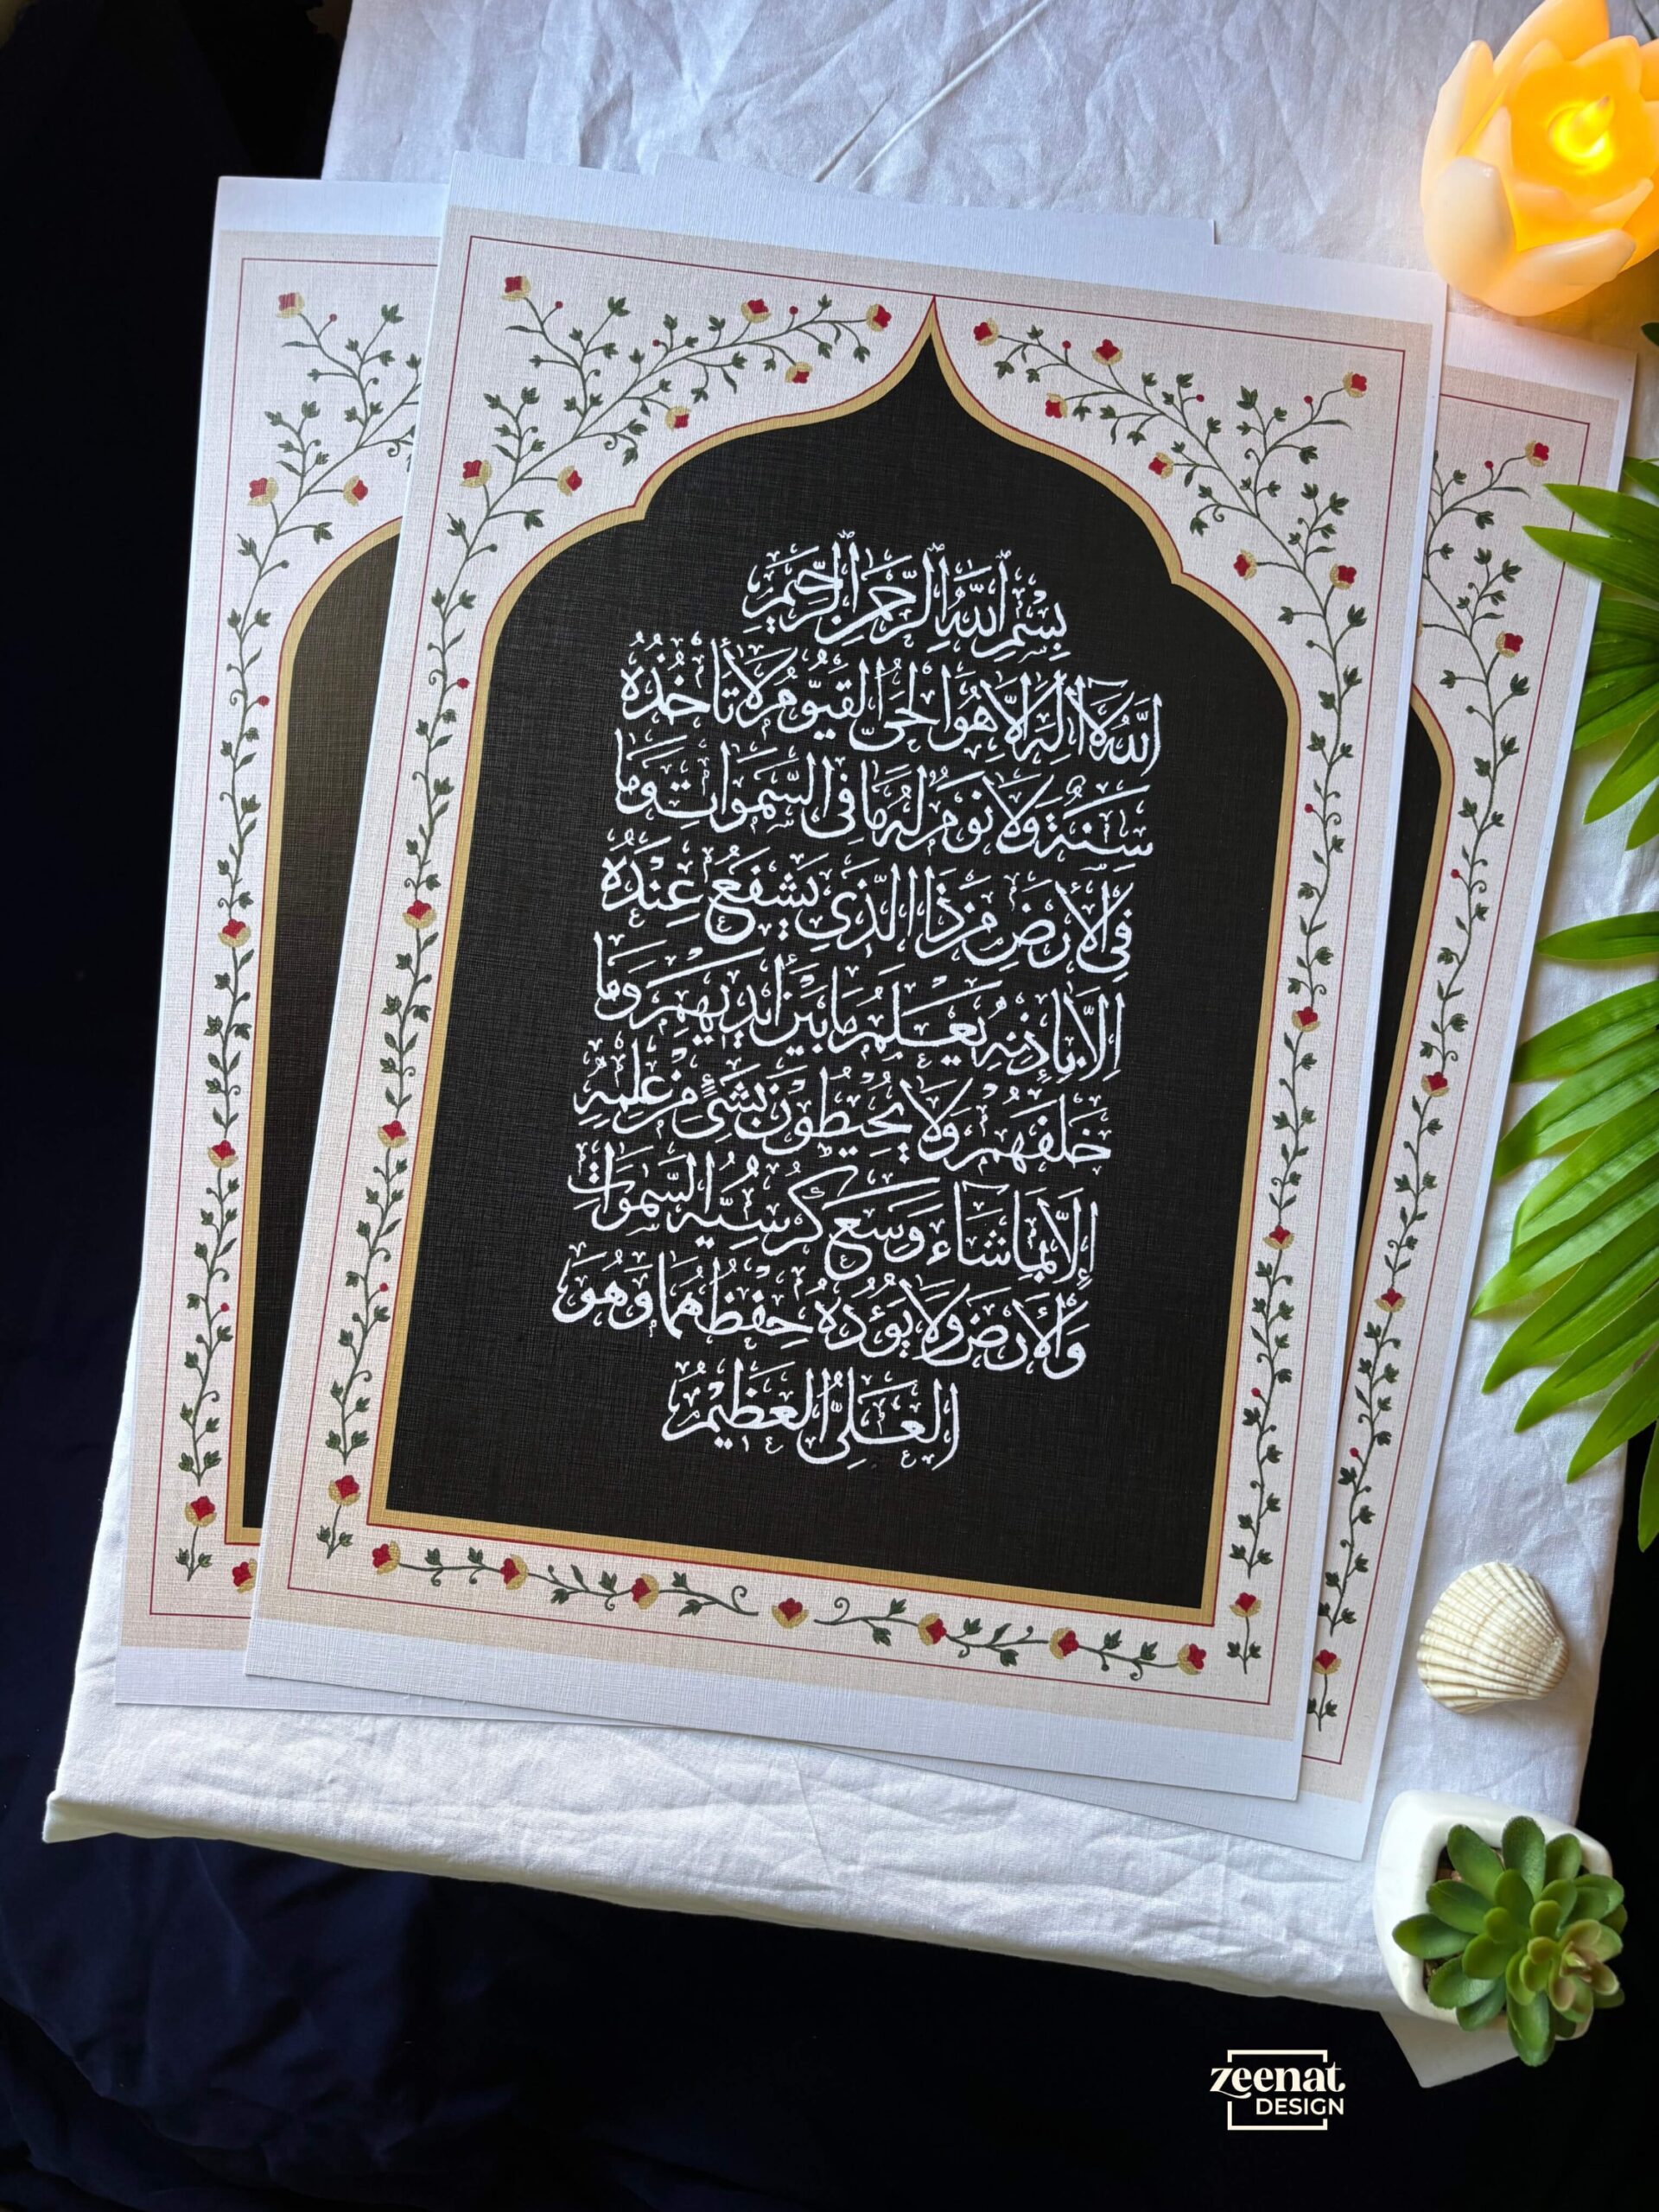 بِسْمِ اللّٰهِ الرَّحْمٰنِ الرَّحِيْمِ
اَللّٰهُ لَآ اِلٰهَ اِلَّا هُوَ الْحَىُّ الْقَيُّوْمُ لَا تَأْخُذُهٗ
سِنَةٌ وَّلَا نَوْمٌ لَهٗ مَا فِى السَّمٰوَاتِ وَمَا
فِى الْاَرْضِ مَنْ ذَا الَّذِىْ يَشْفَعُ عِنْدَهٗ
اِلَّا بِاِذْنِهٖ يَعْلَمُ مَا بَيْنَ اَيْدِيْهِمْ وَمَا
خَلْفَهُمْ وَلَا يُحِيْطُوْنَ بِشَىْءٍ مِّنْ عِلْمِهٖ
اِلَّا بِمَا شَآءَ وَسِعَ كُرْسِيُّهُ السَّمٰوَاتِ
وَالْاَرْضَ وَلَا يَؤُدُهٗ حِفْظُهُمَا وَهُوَ
الْعَلِىُّ الْعَظِيْمُ
zeenat
DESIGN